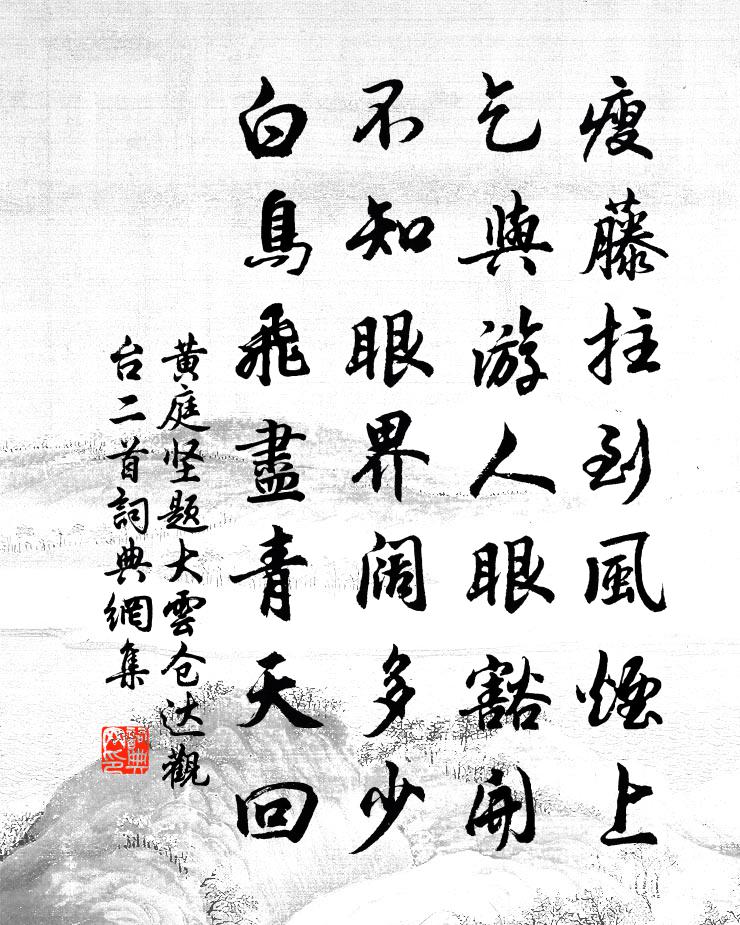 瘦藤拄到風煙上
乞與游人眼豁開
不知眼界闊多少
白鳥飛盡青天回
黄庭坚題大雲仓达觀
台二首詞典網集